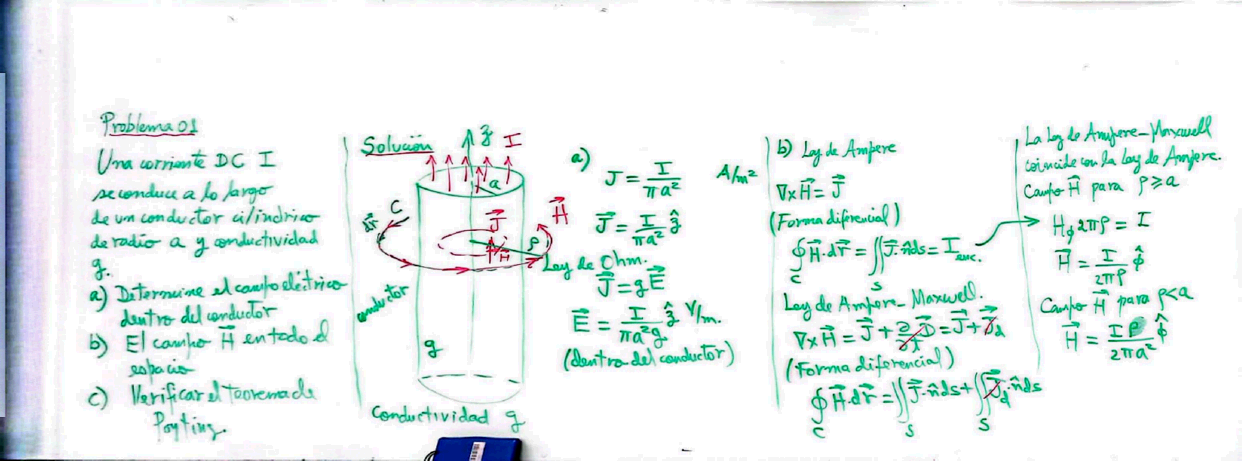 Problema 01
Una corriente DC I
se conduce a lo largo
de un conductor cilíndrico
de radio a y conductividad
g.
a) Determine el campo eléctrico
dentro del conductor
b) El campo H⃗ en todo el
espacio
c) Verificar el teorema de
Poyting.
Solución
ẑ I
a
C
dr⃗
J⃗
H⃗
ρ
H
conductor
g
Conductividad g
a)
J = I / πa² A/m²
J⃗ = I / πa² ẑ
Ley de Ohm.
J⃗ = gE⃗
E⃗ = I / πa²g ẑ V/m.
(dentro del conductor)
b) Ley de Ampere
∇×H⃗ = J⃗
(Forma diferencial)
∮_C H⃗·dr⃗ = ∬_S J⃗·n̂ds = I enc.
Ley de Ampere-Maxwell.
∇×H⃗ = J⃗ + ∂/∂t D⃗ = J⃗ + J⃗d
(Forma diferencial)
∮_C H⃗·dr⃗ = ∬_S J⃗·n̂ds + ∬_S J⃗d·n̂ds
La Ley de Ampere-Maxwell
coincide con la Ley de Ampere.
Campo H⃗ para ρ≥a
Hϕ 2πρ = I
H⃗ = I / 2πρ ϕ̂
Campo H⃗ para ρ<a
H⃗ = Iρ / 2πa² ϕ̂